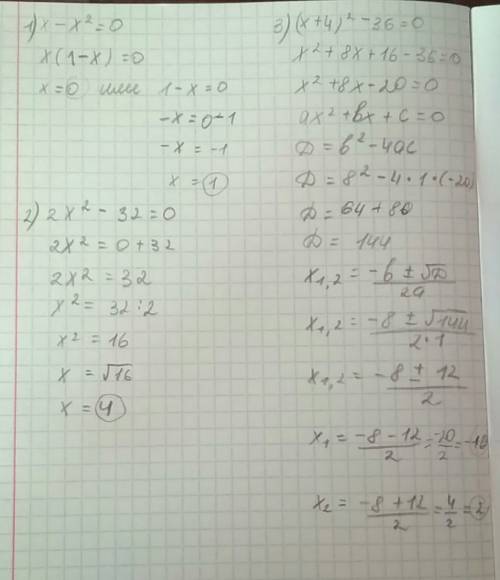 1) x - x² = 0
x(1-x) = 0
x = 0 или 1-x = 0
-x = 0-1
-x = -1
x = 1
2) 2x² - 32 = 0
2x² = 0 + 32
2x² = 32
x² = 32:2
x² = 16
x = √16
x = 4
3) (x+4)² - 36 = 0
x² + 8x + 16 - 36 = 0
x² + 8x - 20 = 0
ax² + bx + c = 0
D = b² - 4ac
D = 8² - 4·1·(-20)
D = 64 + 80
D = 144
x₁,₂ = (-b ± √D)/2a
x₁,₂ = (-8 ± √144)/2·1
x₁,₂ = (-8 ± 12)/2
x₁ = (-8-12)/2 = -20/2 = -10
x₂ = (-8+12)/2 = 4/2 = 2